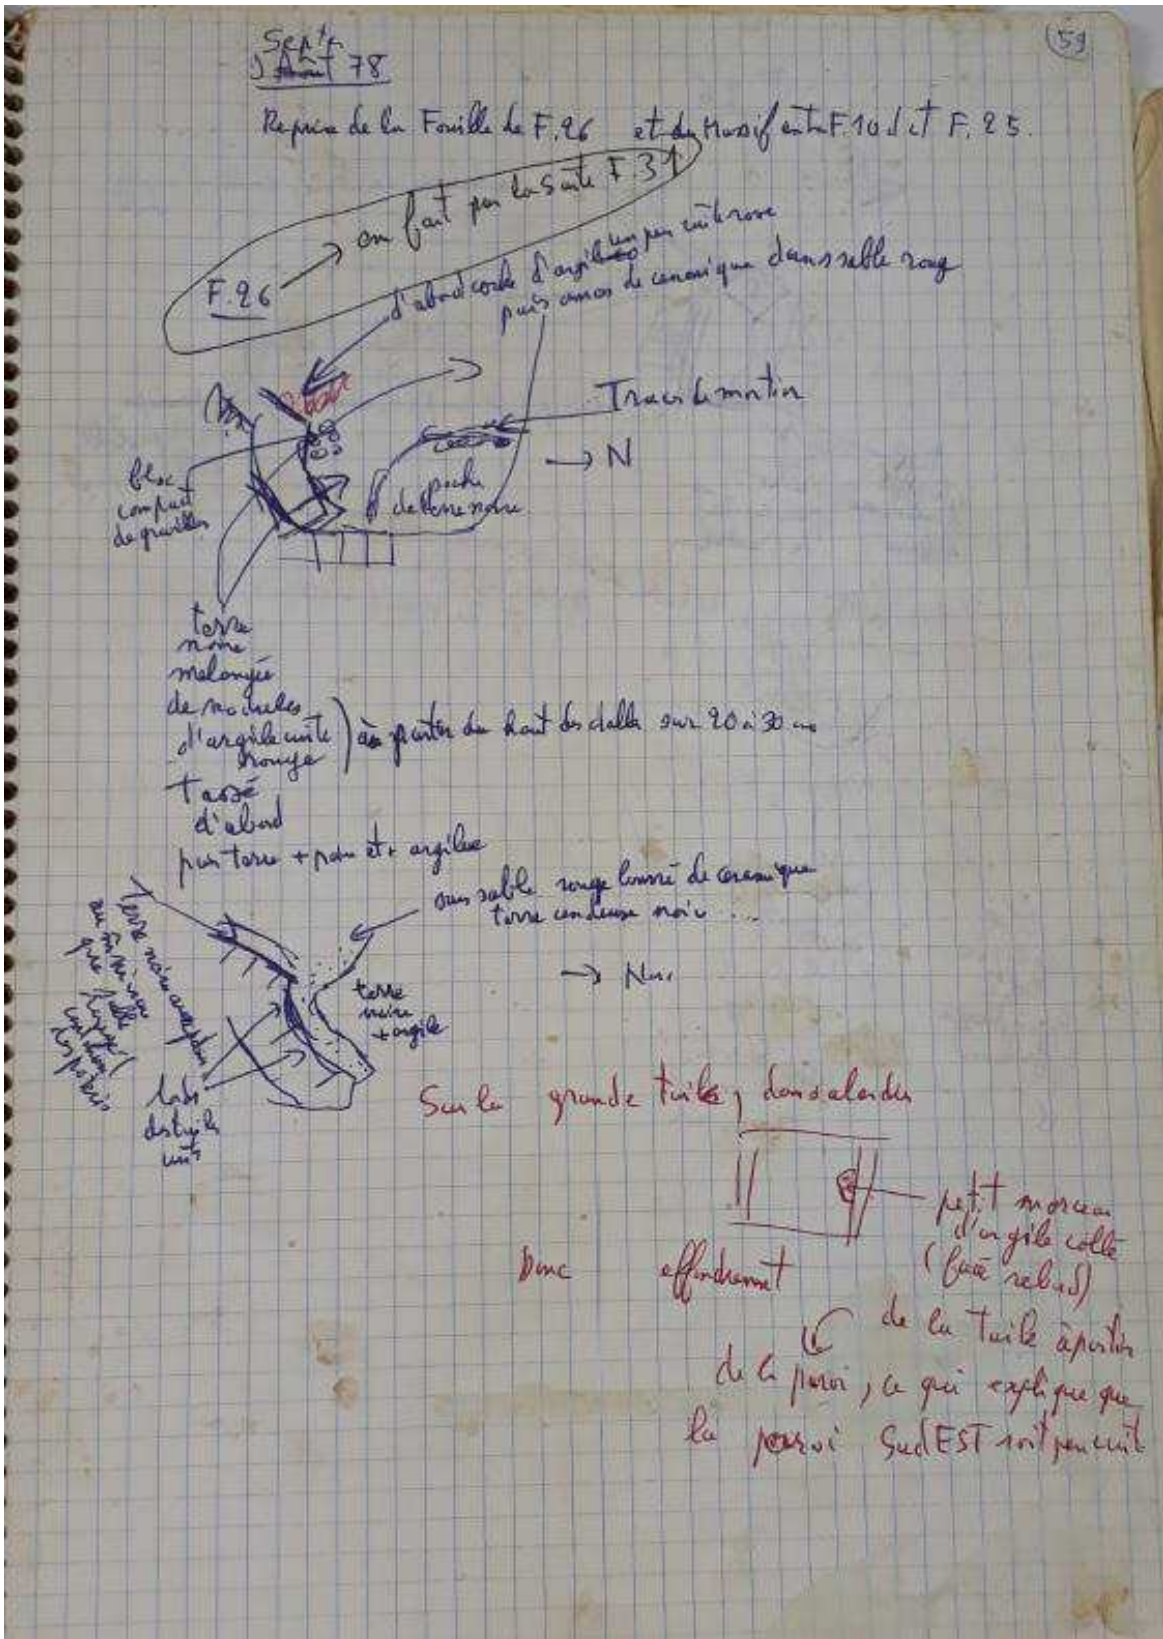 59
Septr
Août 78
Reprise de la Fouille de F.26 et du Massif entre F.10d et F.25.
F.26 → en fait par la suite F.31
d'abord couche d'argile un peu cuite rose
puis amas de ceramique dans sable rouge
Traces de mortier
→ N
bloc
compact
de gravilles
poche
de terre noire
terre
noire
melangée
de nodules
d'argile cuite
rouge
à partir du haut des dalles sur 20 à 30 cm
Tassé
d'abord
puis terre + pure et + argileuse
sous sable rouge bourré de ceramique
terre cendreuse noire ...
→ Nord
terre
noire
+ argile
terre noire
au même niveau
que
Sur la grande tuile, dans alandier
petit morceau
d'argile collé
(face rebord)
Donc effondrement
de la Tuile à partir
de la paroi, ce qui explique que
la paroi Sud EST soit peu cuite